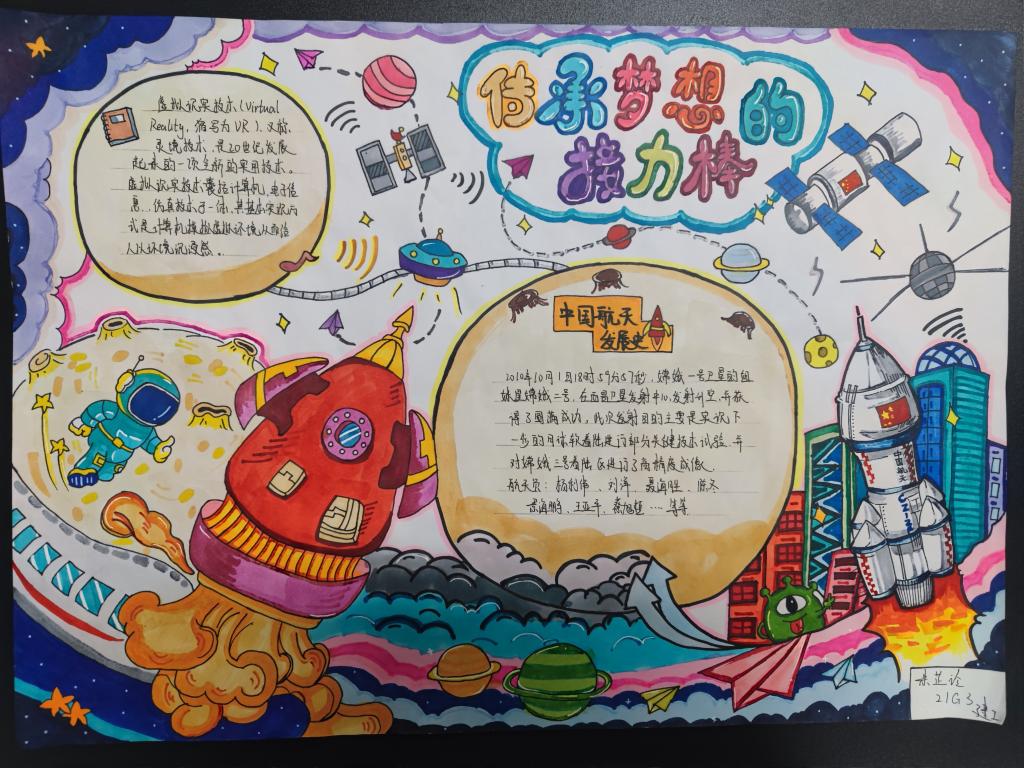 传承梦想的
接力棒
虚拟现实技术(Virtual
Reality,缩写为VR),又称
灵境技术,是20世纪发展
起来的一项全新的实用技术。
虚拟现实技术囊括计算机,电子信
息、仿真技术于一体,其基本实现方
式是计算机模拟虚拟环境从而给
人以环境沉浸感。
中国航天
发展史
2010年10月1日18时59分57秒,嫦娥一号卫星的姐
妹星嫦娥二号,在西昌卫星发射中心发射升空,并获
得了圆满成功,此次发射目的主要是实现下
一步的月球软着陆进行部分关键技术试验,并
对嫦娥三号着陆区进行了高精度成像。
航天员:杨利伟、刘洋、聂海胜、陈冬
景海鹏、王亚平、蔡旭哲…等等
中国航天
21G3